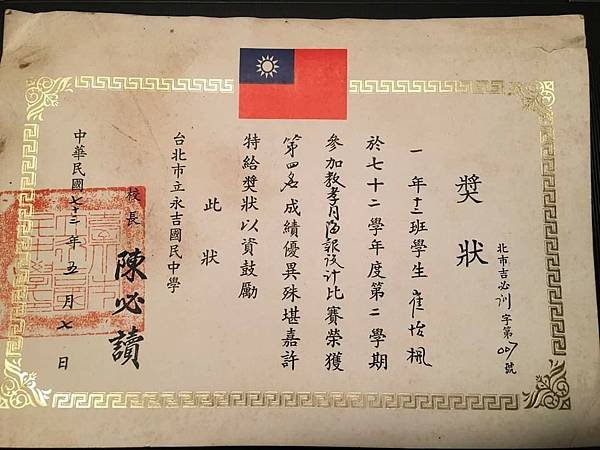 獎狀
北市吉必訓字第007號
一年十三班學生崔
於七十二學年度第二學期
參加教孝月海報設計比賽榮獲
第四名成績優異殊堪嘉許
特給獎狀以資鼓勵
此狀
台北市立永吉國民中學
校長 陳必讀
中華民國七十三年五月七日